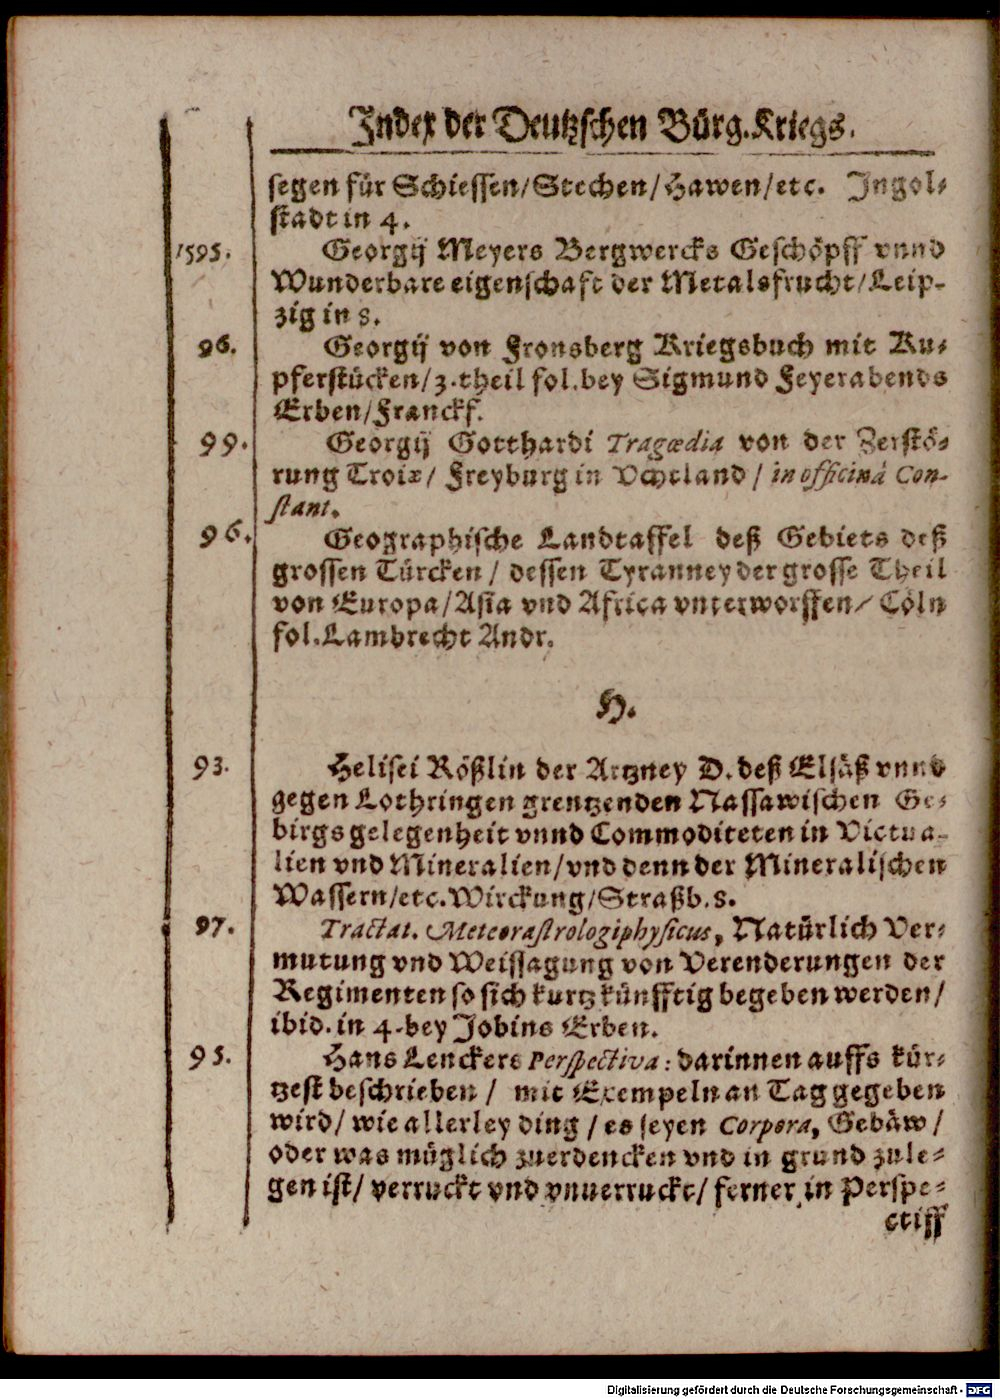 Index der Deutzschen Bürg. Kriegs.
segen für Schiessen/Stechen/Hawen/etc. Ingol-
stadt in 4.
1595. Georgij Meyers Bergwercks Geschöpff vnnd
Wunderbare eigenschaft der Metalsfrucht/Leip-
zig in 8.
96. Georgij von Fronsberg Kriegsbuch mit Ku-
pferstücken/3.theil fol.bey Sigmund Feyerabends
Erben/Franckf.
99. Georgij Gotthardi Tragœdia von der Zerstö-
rung Troiæ/ Freyburg in Vchtland / in officinâ Con-
stant.
96. Geographische Landtaffel deß Gebiets deß
grossen Türcken / dessen Tyranney der grosse Theil
von Europa/Asia vnd Africa vnterworffen/ Cöln
fol.Lambrecht Andr.
H.
93. Helisei Rößlin der Artzney D. deß Elsäß vnnd
gegen Lothringen grentzenden Nassawischen Ge-
birgs gelegenheit vnnd Commoditeten in Victua-
lien vnd Mineralien/vnd denn der Mineralischen
Wassern/etc.Wirckung/Straßb.8.
97. Tractat. Meteorastrologiphysicus, Natürlich Ver-
mutung vnd Weissagung von Verenderungen der
Regimenten so sich kurtz künfftig begeben werden/
ibid. in 4.bey Jobins Erben.
95. Hans Lenckers Perspectiva: darinnen auffs kür-
tzest beschrieben / mit Exempeln an Tag gegeben
wird/ wie allerley ding / es seyen Corpora, Gebäw /
oder was müglich zuerdencken vnd in grund zule-
gen ist/ verruckt vnd vnuerruckt/ ferner in Perspe-
ctiff
Digitalisierung gefördert durch die Deutsche Forschungsgemeinschaft - DFG